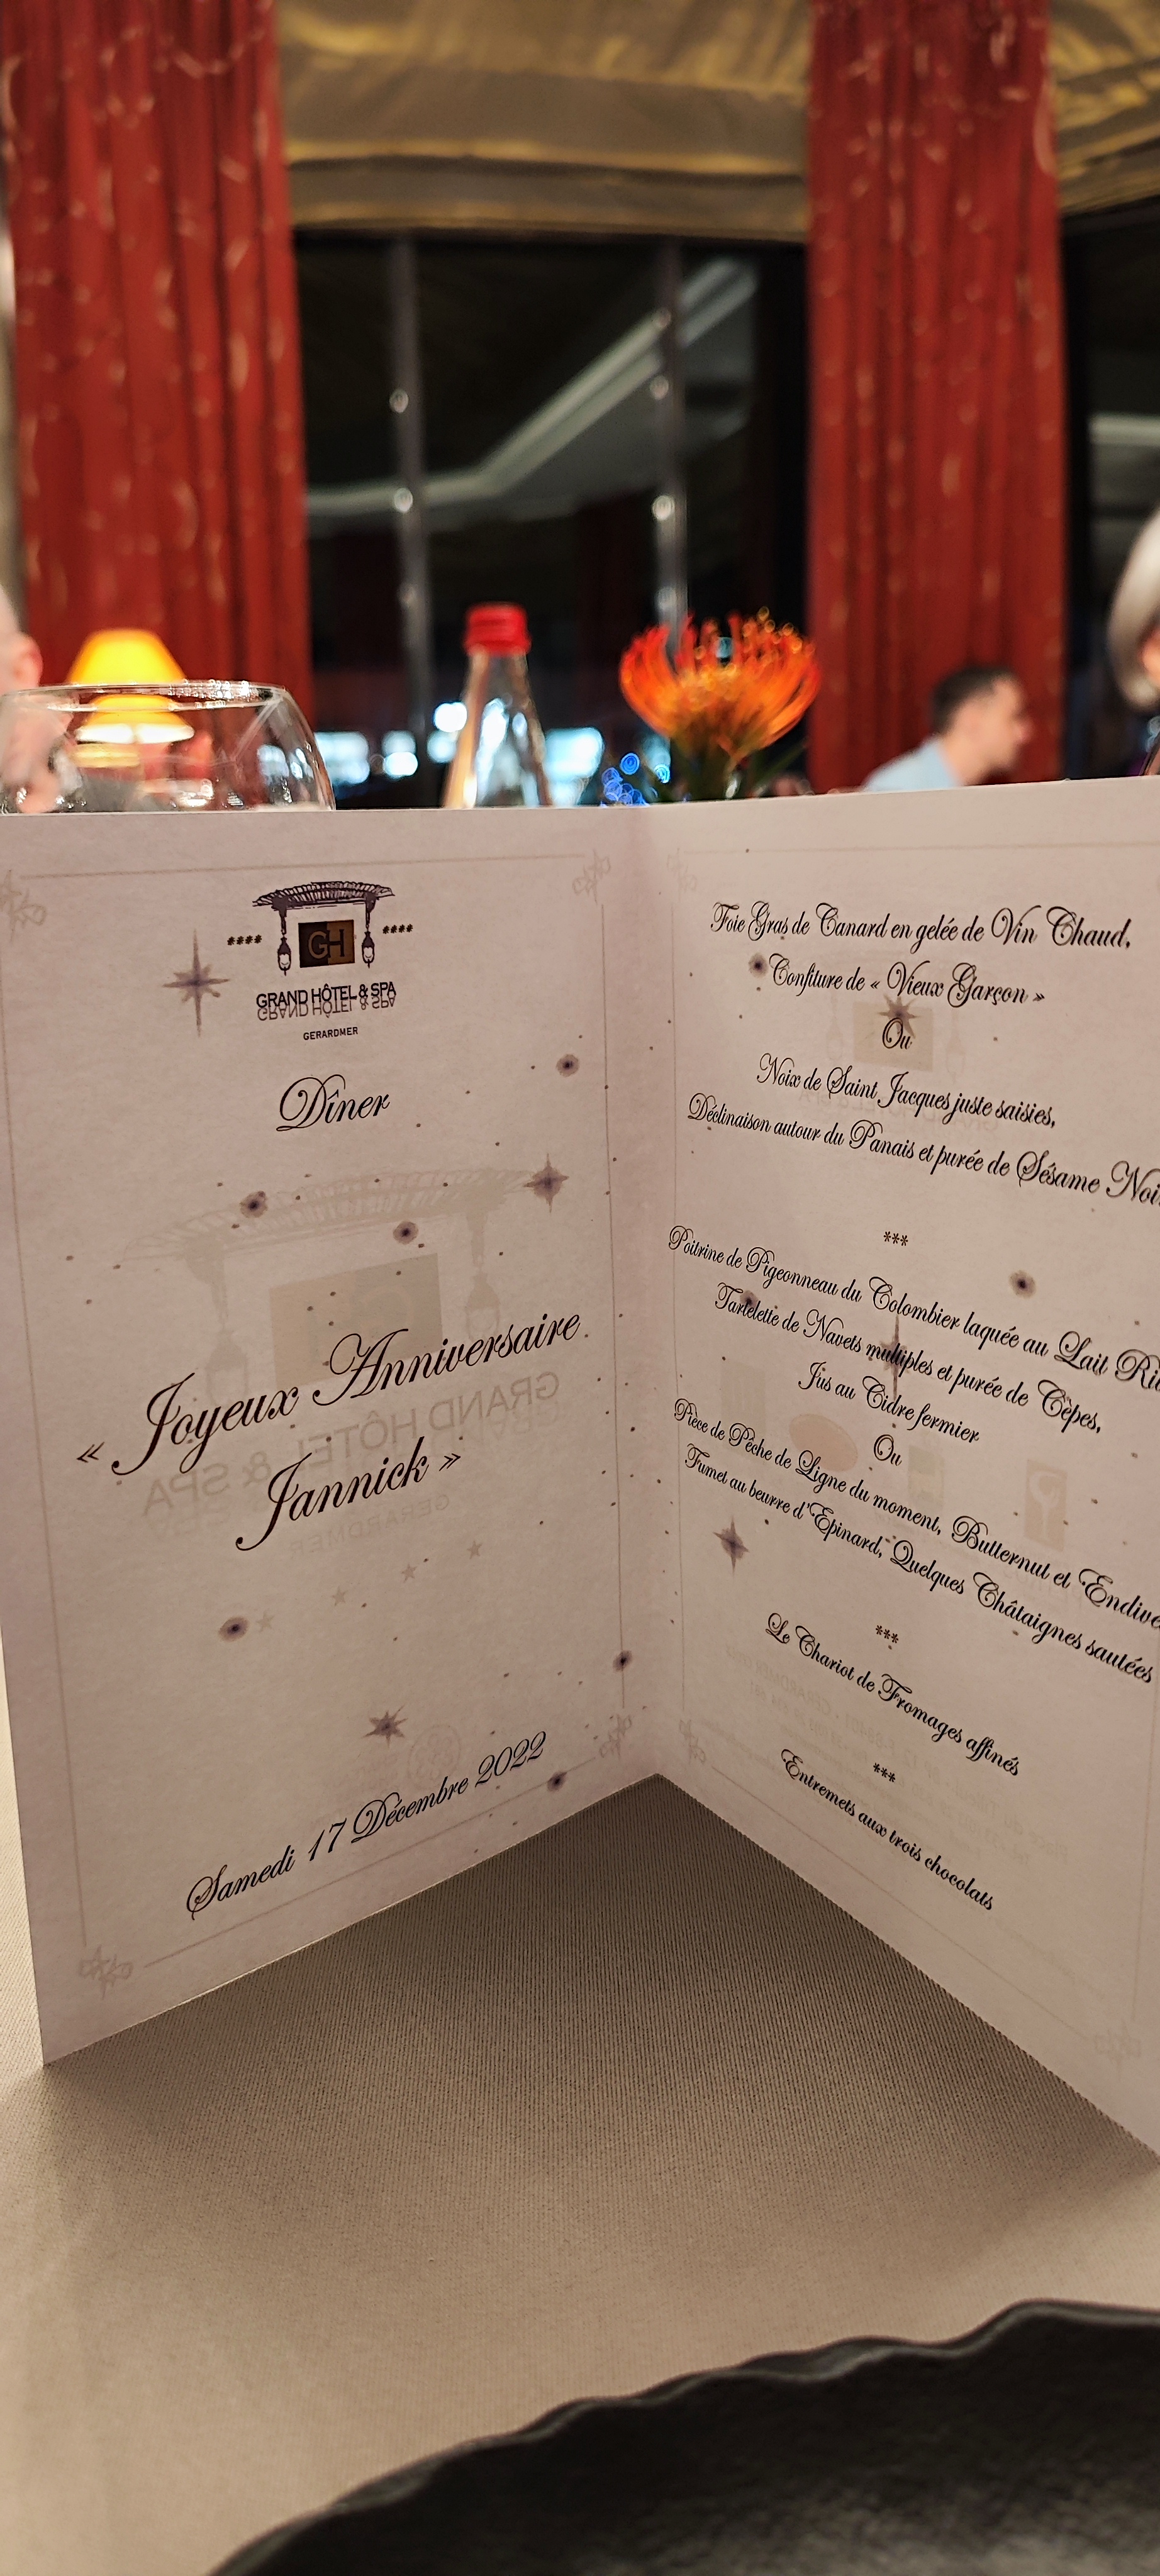 **** GH ****
GRAND HÔTEL & SPA
GERARDMER
Dîner
« Joyeux Anniversaire
Jannick »
Samedi 17 Décembre 2022
Foie Gras de Canard en gelée de Vin Chaud,
Confiture de « Vieux Garçon »
Ou
Noix de Saint Jacques juste saisies,
Déclinaison autour du Panais et purée de Sésame
***
Poitrine de Pigeonneau du Colombier laquée au Lait
Tartelette de Navets multiples et purée de Cèpes,
Jus au Cidre fermier
Ou
Pièce de Pêche de Ligne du moment, Butternut et
Fumet au beurre d'Epinard, Quelques Châtaignes sautées
***
Le Chariot de Fromages affinés
***
Entremets aux trois chocolats